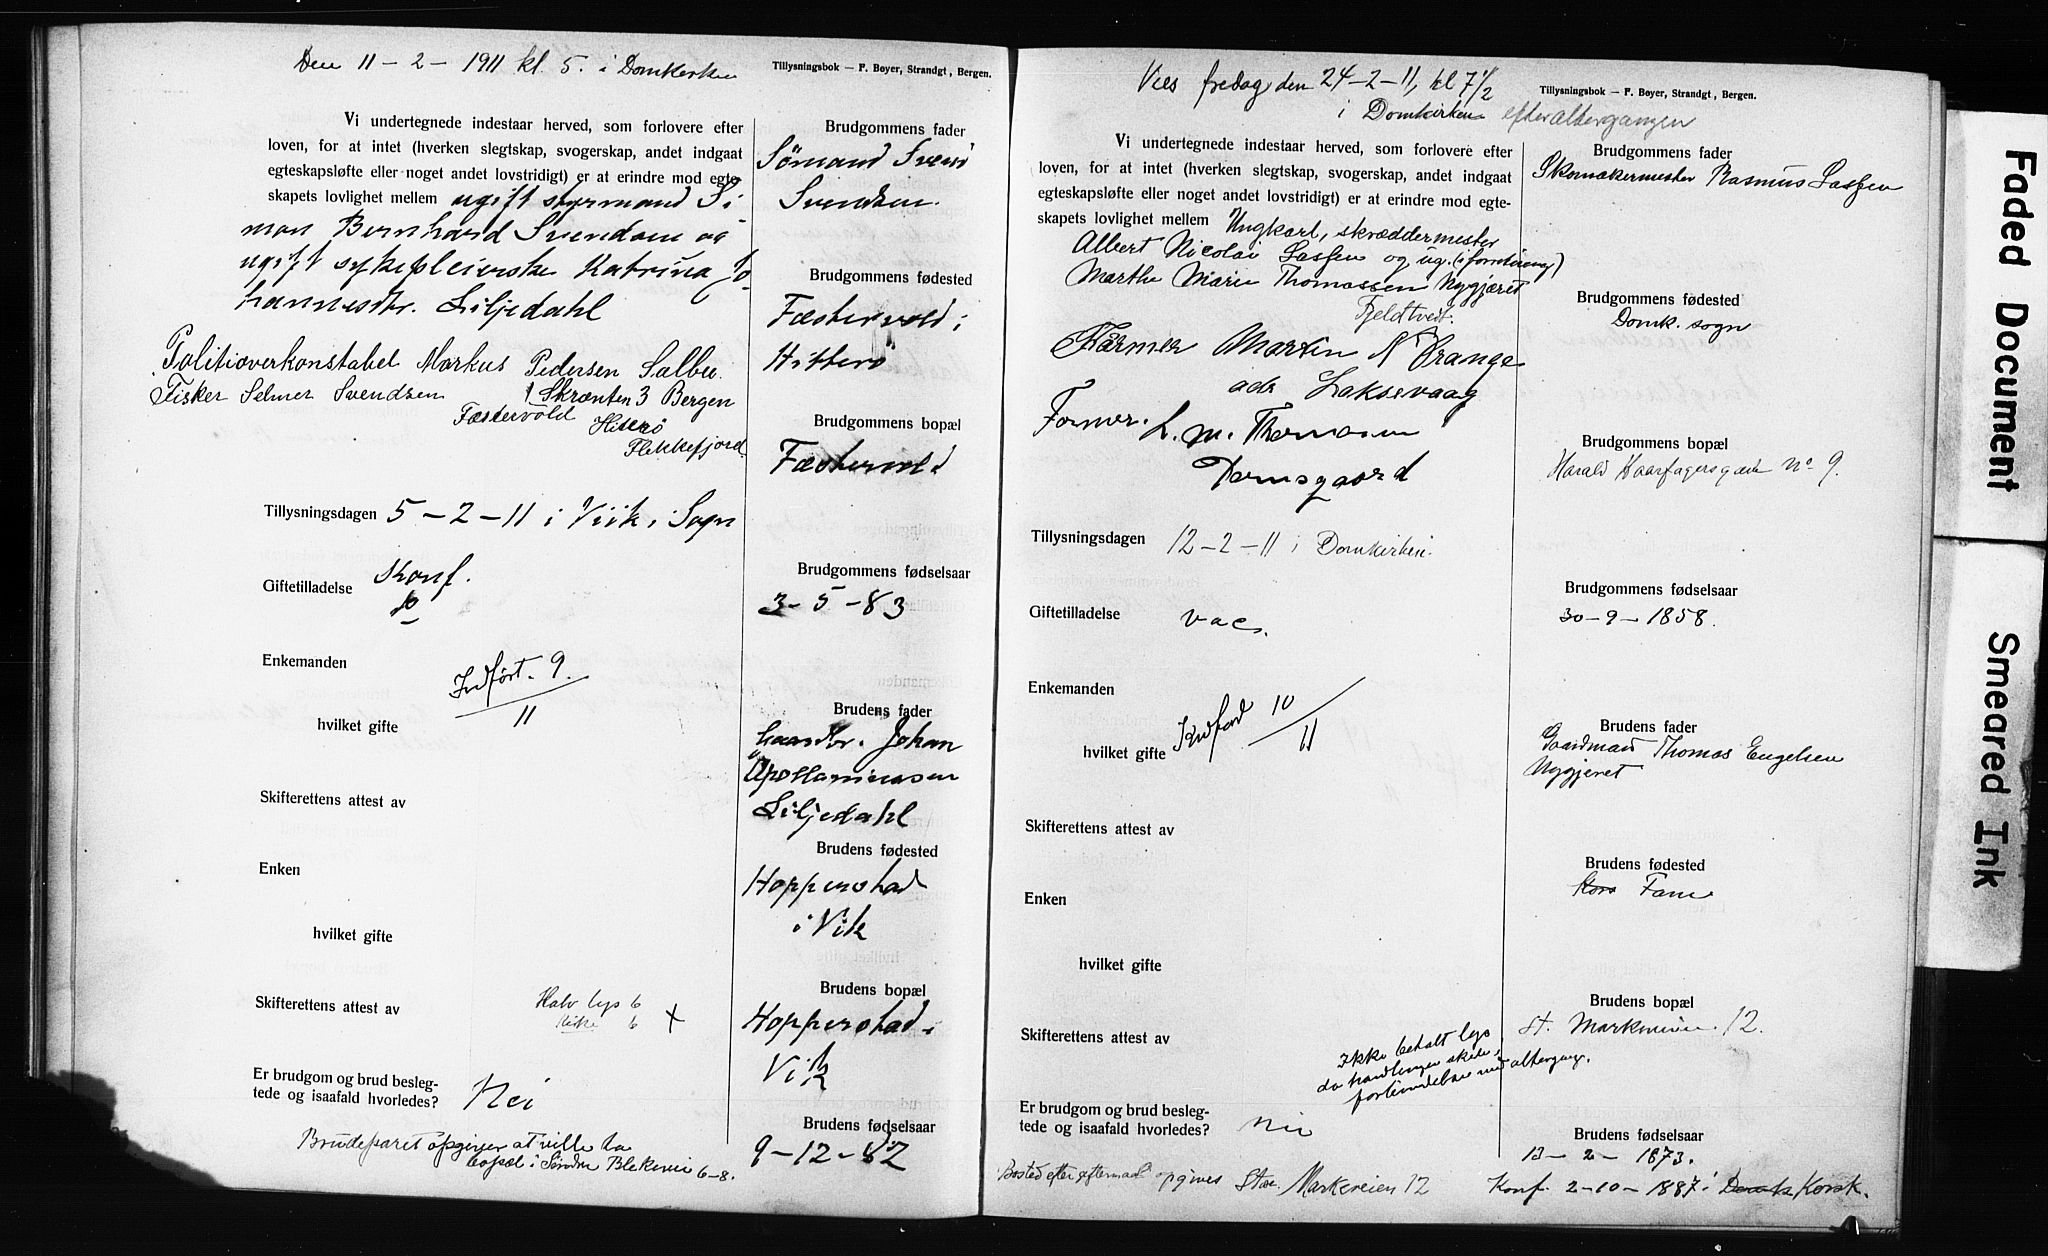 Den 11-2-1911 kl. 5. i Domkerken
Tillysningsbok — F. Bøyer, Strandgt, Bergen.
Vi undertegnede indestaar herved, som forlovere efter
loven, for at intet (hverken slegtskap, svogerskap, andet indgaat
egteskapsløfte eller noget andet lovstridigt) er at erindre mod egte-
skapets lovlighet mellem ugift styrmand Si
mon Bernhard Svendsen og
ugift sykepleierske Katrina Jo
hannesdtr. Liljedahl
Politioverkonstabel Markus Pedersen Salbu.
Skrænten 3 Bergen
Fisker Selmer Svendsen
Fæstervold Hiterø
Flekkefjord
Tillysningsdagen 5-2-11 i Viik i Sogn
Giftetilladelse Konf.
Enkemanden
Indført. 9/11
hvilket gifte
Skifterettens attest av
Enken
hvilket gifte
Skifterettens attest av
Halv lys 6
6 X
Er brudgom og brud besleg-
tede og isaafald hvorledes? Nei
Brudeparet opgiver at ville ta
bopæl i Søndre Blekevei 6-8.
Brudgommens fader
Sømand Svend
Svendsen.
Brudgommens fødested
Fæstervold i
Hitterø
Brudgommens bopæl
Fæstervold
Brudgommens fødselsaar
3-5-83
Brudens fader
Gaardbr. Johan
Liljedahl
Brudens fødested
Hopperstad
i Vik
Brudens bopæl
Hopperstad i
Vik
Brudens fødselsaar
9-12-82
Vies fredag den 24-2-11, kl 7 1/2
i Domkirken efter altergangen
Tillysningsbok — F. Bøyer, Strandgt, Bergen.
Vi undertegnede indestaar herved, som forlovere efter
loven, for at intet (hverken slegtskap, svogerskap, andet indgaat
egteskapsløfte eller noget andet lovstridigt) er at erindre mod egte-
skapets lovlighet mellem Ungkarl, skræddermester
Albert Nicolai Lassen og ug. (i forretning)
Marthe Marie Thomassen Nygjæret
Fjeldtvedt.
Farmer Martin N Drange
adr Laksevaag
Former. L. M. Thomassen
Damsgaard
Tillysningsdagen 12-2-11 i Domkirken.
Giftetilladelse vac.
Enkemanden
Indført 10/11
hvilket gifte
Skifterettens attest av
Enken
hvilket gifte
Skifterettens attest av
Ikke behalt lys
da handlingen skede i
forbindelse med altergang.
Er brudgom og brud besleg-
tede og isaafald hvorledes? Nei
Bosted efter eftermæl opgives Store Markeveien 12
Brudgommens fader
Skomakermester Rasmus Lassen
Brudgommens fødested
Domk. sogn
Brudgommens bopæl
Harald Haarfagersgade No 9.
Brudgommens fødselsaar
30-9-1858.
Brudens fader
Gaardmand Thomas Engelsen
Nygjeret
Brudens fødested
Kors Fane
Brudens bopæl
St. Markeveien 12.
Brudens fødselsaar
13-2-1873.
Konf. 2-10-1887 i Domk Korsk.
Faded Document
Smeared Ink